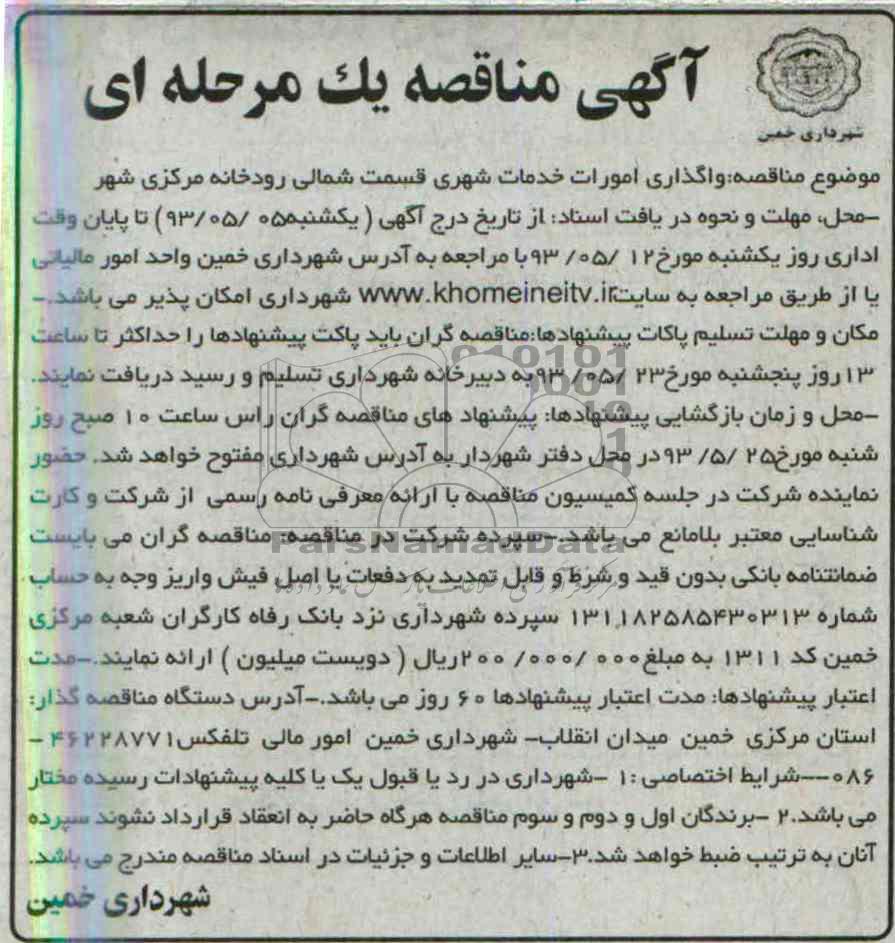 شهرداری خمین
آگهی مناقصه یك مرحله ای
موضوع مناقصه:واگذاری امورات خدمات شهری قسمت شمالی رودخانه مرکزی شهر
-محل، مهلت و نحوه در یافت اسناد: از تاریخ درج آگهی ( یکشنبه۰۵ /۹۳/۰۵) تا پایان وقت
اداری روز یکشنبه مورخ۱۲ /۰۵/ ۹۳با مراجعه به آدرس شهرداری خمین واحد امور مالیاتی
یا از طریق مراجعه به سایتwww.khomeineitv.ir شهرداری امکان پذیر می باشد.-
مکان و مهلت تسلیم پاکات پیشنهادها:مناقصه گران باید پاکت پیشنهادها را حداکثر تا ساعت
۱۳روز پنجشنبه مورخ۲۳ /۰۵/ ۹۳به دبیرخانه شهرداری تسلیم و رسید دریافت نمایند.
-محل و زمان بازگشایی پیشنهادها: پیشنهاد های مناقصه گران راس ساعت ۱۰ صبح روز
شنبه مورخ۲۵ /۵/ ۹۳در محل دفتر شهردار به آدرس شهرداری مفتوح خواهد شد. حضور
نماینده شرکت در جلسه کمیسیون مناقصه با ارائه معرفی نامه رسمی از شرکت و کارت
شناسایی معتبر بلامانع می باشد.-سپرده شرکت در مناقصه: مناقصه گران می بایست
ضمانتنامه بانکی بدون قید و شرط و قابل تمدید به دفعات یا اصل فیش واریز وجه به حساب
شماره ۱۳۱,۱۸۲۵۸۵۴۳۰۳۱۳ سپرده شهرداری نزد بانک رفاه کارگران شعبه مرکزی
خمین کد ۱۳۱۱ به مبلغ۰۰۰ /۰۰۰/ ۲۰۰ریال ( دویست میلیون ) ارائه نمایند.-مدت
اعتبار پیشنهادها: مدت اعتبار پیشنهادها ۶۰ روز می باشد.-آدرس دستگاه مناقصه گذار:
استان مرکزی خمین میدان انقلاب- شهرداری خمین امور مالی تلفکس۴۶۲۲۸۷۷۱ -
۰۸۶--شرایط اختصاصی :۱ -شهرداری در رد یا قبول یک یا کلیه پیشنهادات رسیده مختار
می باشد.۲ -برندگان اول و دوم و سوم مناقصه هرگاه حاضر به انعقاد قرارداد نشوند سپرده
آنان به ترتیب ضبط خواهد شد.۳-سایر اطلاعات و جزئیات در اسناد مناقصه مندرج می باشد.
شهرداری خمین
ParsNamadData